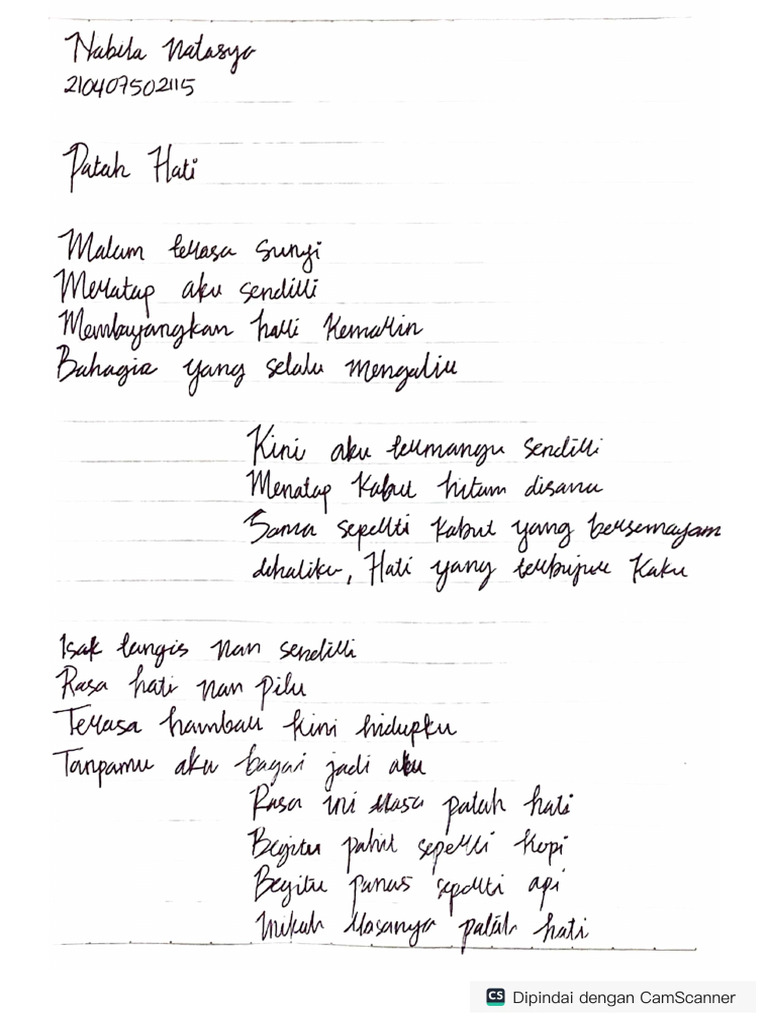 Nabila Natasya
210407502115
Patah Hati
Malam terasa sunyi
Meratap aku sendiri
Membayangkan hari kemarin
Bahagia yang selalu mengalir
Kini aku termangu sendiri
Menatap kabut hitam disana
Sama seperti kabut yang bersemayam
dihatiku, Hati yang terbujur kaku
Isak tangis nan sendiri
Rasa hati nan pilu
Terasa hambar kini hidupku
Tanpamu aku bagai jadi abu
Rasa ini rasa patah hati
Begitu pahit seperti kopi
Begitu panas seperti api
Inikah rasanya patah hati
CS Dipindai dengan CamScanner